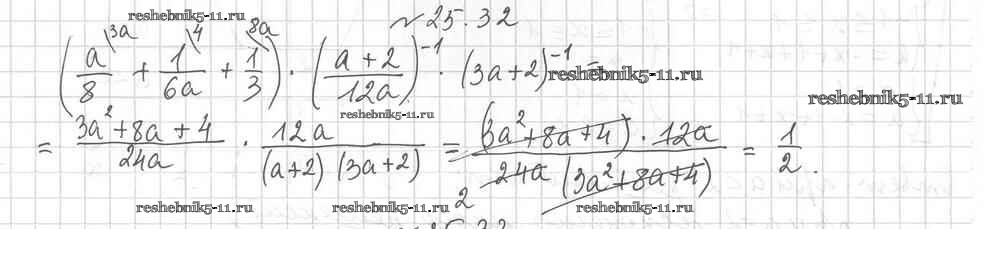 reshebnik5-11.ru № 25.32
(a/8 \3a + 1/6a \4 + 1/3 \8a) · ((a+2)/12a)^-1 · (3a+2)^-1 =
reshebnik5-11.ru
reshebnik5-11.ru
reshebnik5-11.ru
= (3a²+8a+4)/24a · 12a/((a+2)(3a+2)) = ((3a²+8a+4) · 12a)/(24a (3a²+8a+4)) = 1/2.
2
reshebnik5-11.ru reshebnik5-11.ru reshebnik5-11.ru